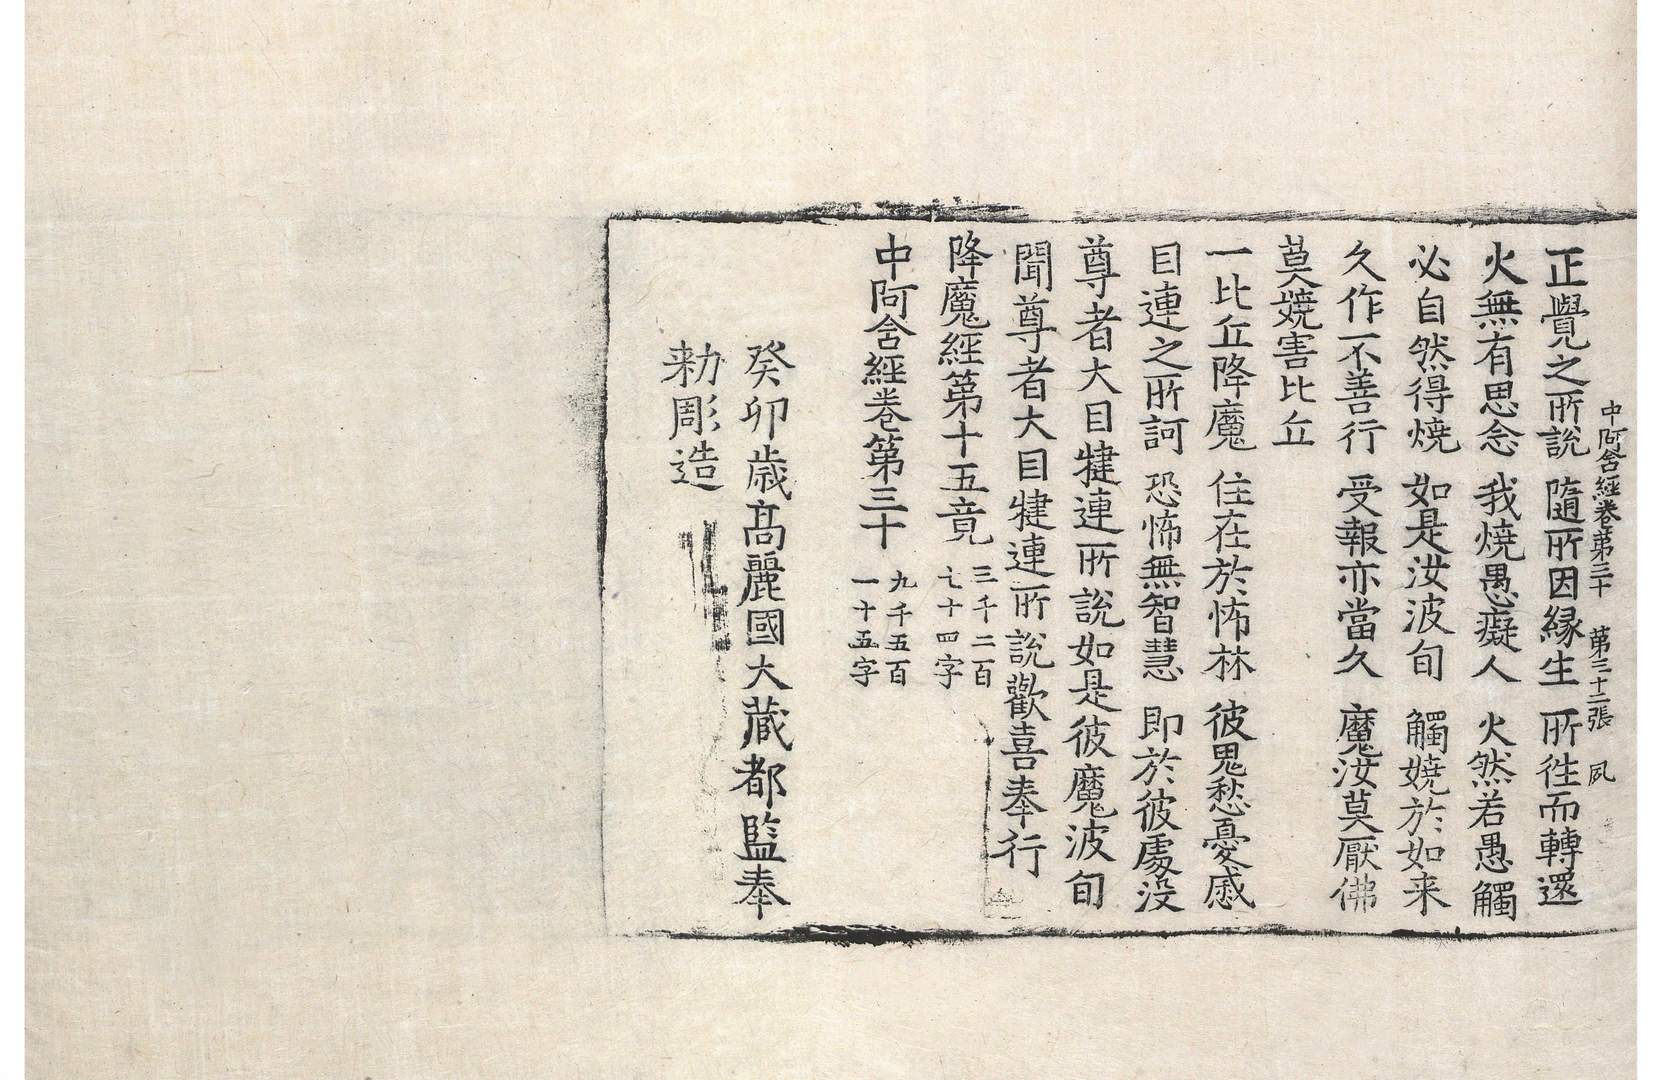 中阿含經卷第三十 第三十二張 夙
正覺之所說 隨所因縁生 所徃而轉還
火無有思念 我燒愚癡人 火然若愚觸
必自然得燒 如是汝波旬 觸嬈於如来
久作不善行 受報亦當久 魔汝莫厭佛
莫嬈害比丘
一比丘降魔 住在於怖林 彼鬼愁憂慼
目連之所訶 恐怖無智慧 即於彼處沒
尊者大目犍連所說如是彼魔波旬
聞尊者大目犍連所說歡喜奉行
降魔經第十五竟 三千二百
七十四字
中阿含經卷第三十 九千五百
一十五字
癸卯歳髙麗國大藏都監奉
勑彫造